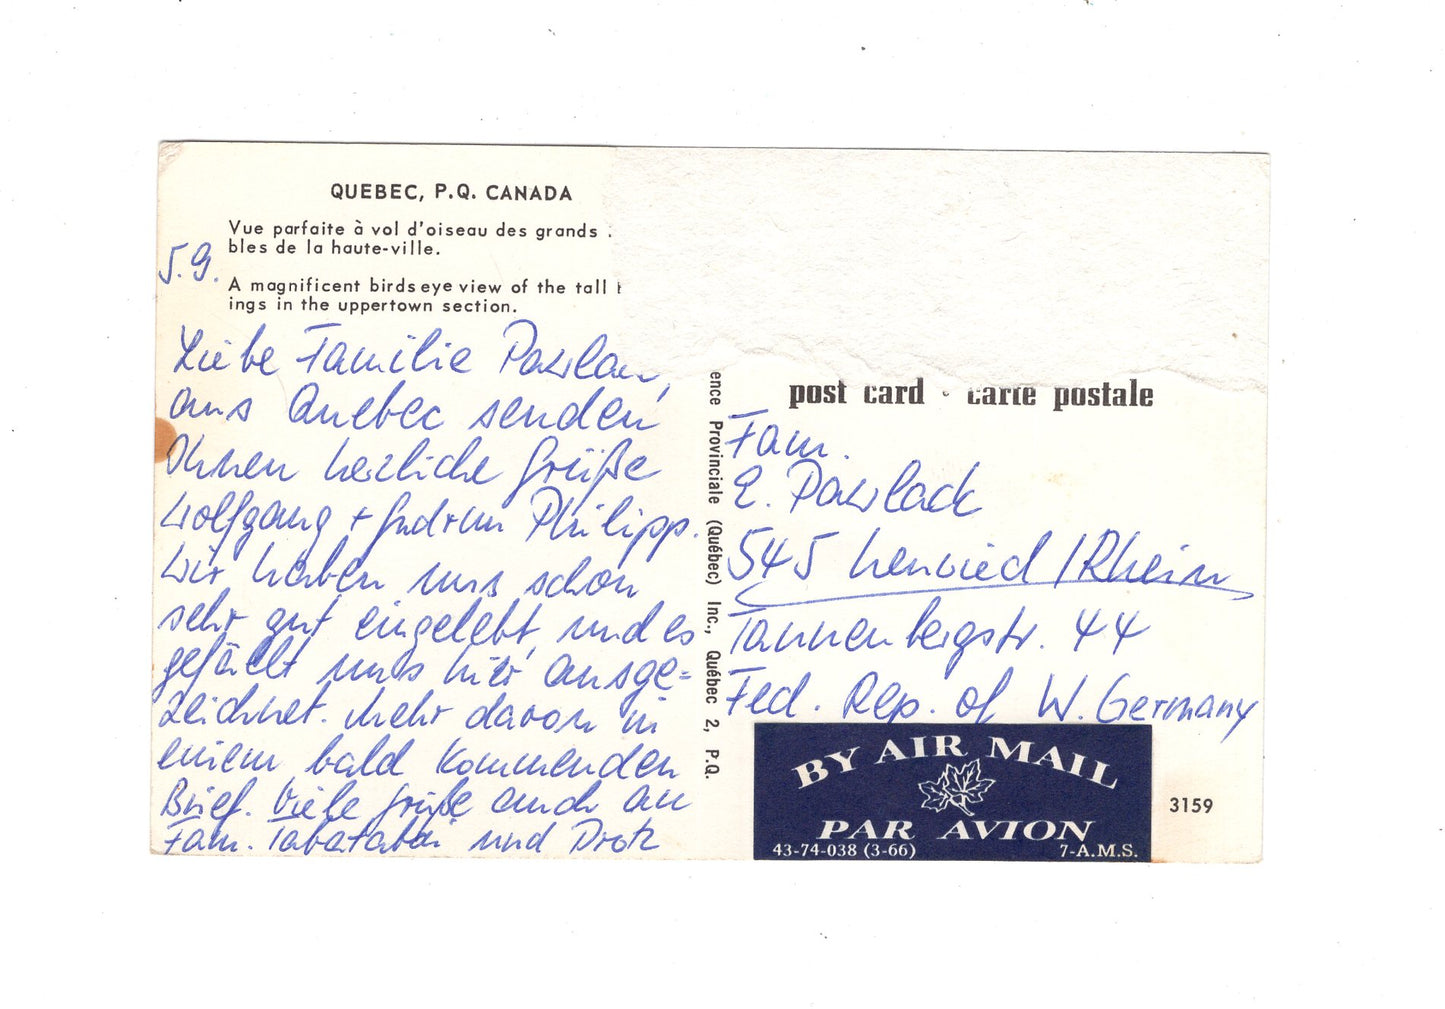 QUEBEC, P.Q. CANADA
Vue parfaite à vol d'oiseau des grands
bles de la haute-ville.
5.9.
A magnificent birds eye view of the tall
ings in the uppertown section.
Liebe Familie Pawlack,
aus Quebec senden
Ihnen herzliche Grüße
Wolfgang + Gudrun Philipp.
Wir haben uns schon
sehr gut eingelebt, und es
gefällt uns hier ausge=
zeichnet. Mehr davon in
einem bald kommenden
Brief. Viele Grüße auch an
Fam. Tabatabai und Drotz
ence Provinciale (Québec) Inc., Québec 2, P.Q.
post card · carte postale
Fam.
E. Pawlack
545 Neuwied / Rhein
Tannenbergstr. 44
Fed. Rep. of W. Germany
BY AIR MAIL
PAR AVION
43-74-038 (3-66) 7-A.M.S.
3159